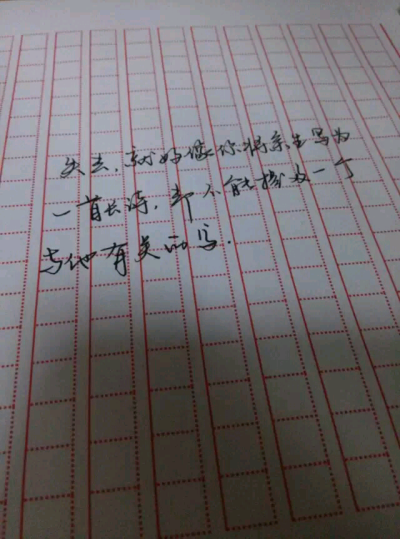 失去，就好像你将余生写为
一首长诗，却不能一个
与他有关的字.